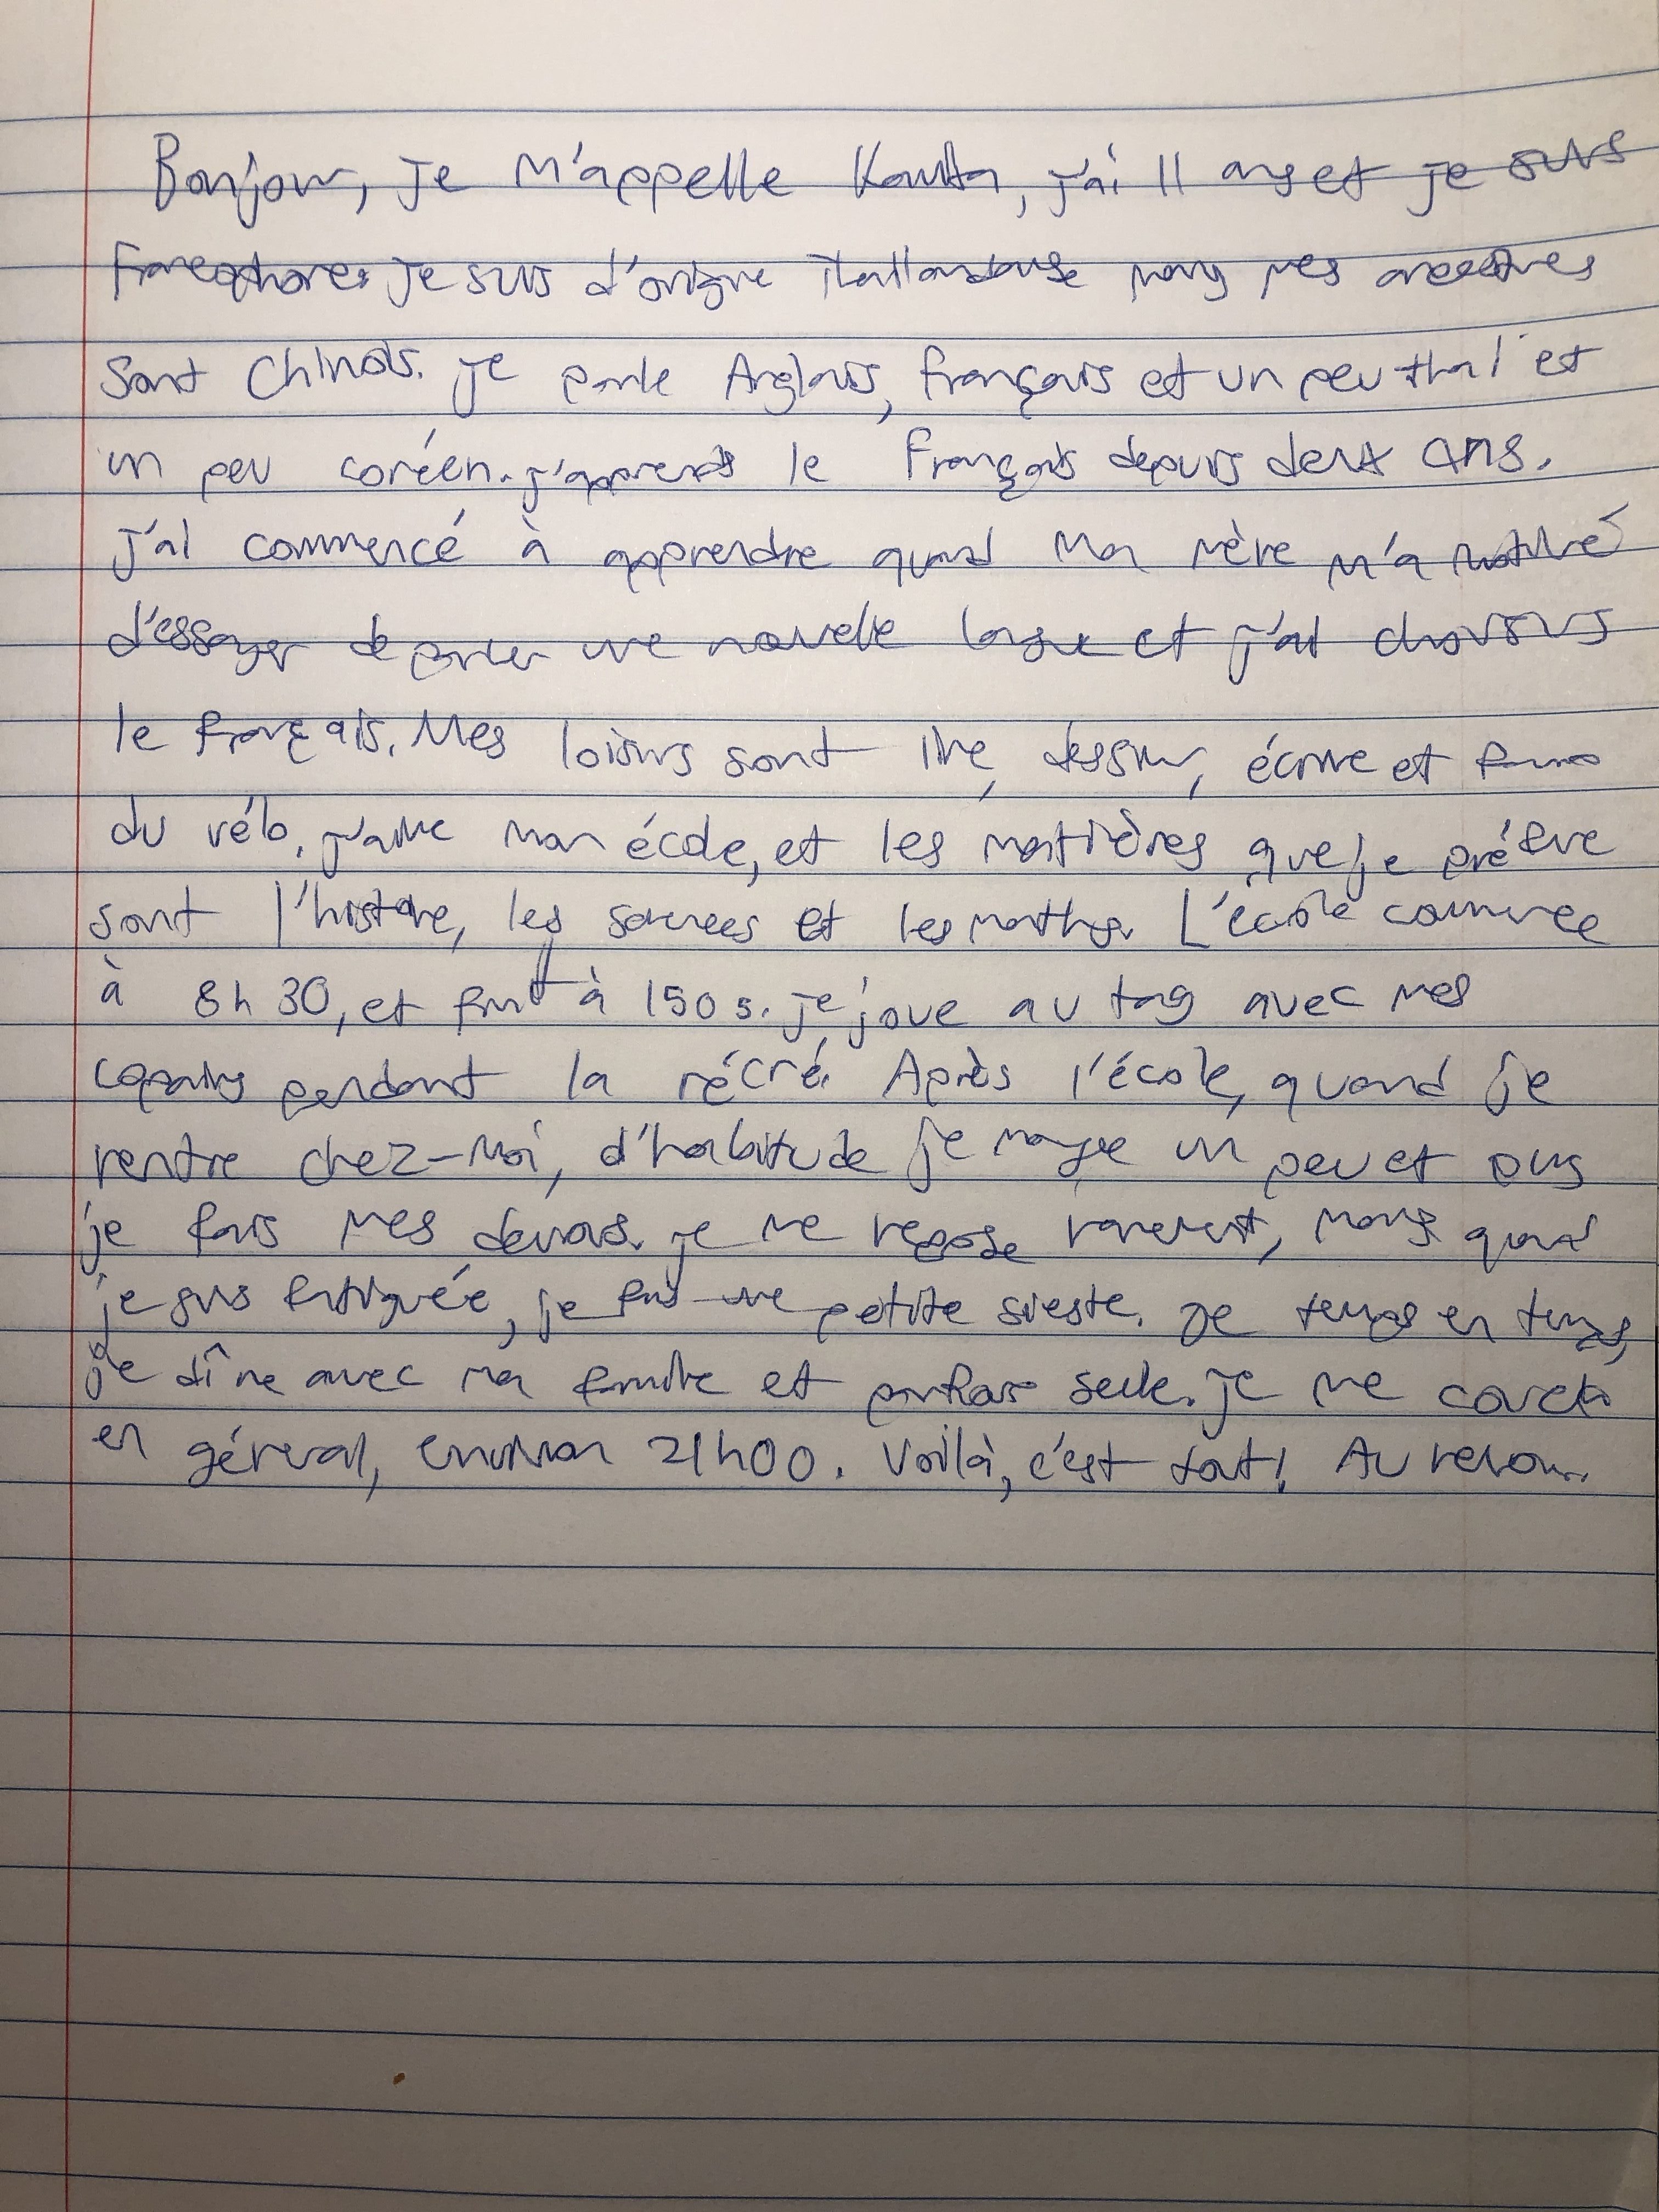 Bonjour, je m'appelle j'ai 11 ans et je suis
francophone. Je suis d'origine mais mes ancêtres
sont Chinois. je parle Anglais, français et un peu thaï et
un peu coréen. j'apprends le français depuis deux ans.
j'ai commencé à apprendre quand ma mère m'a motivé
d'essayer de parler une nouvelle langue et j'ai choisis
le français. Mes loisirs sont lire, dessiner, écrire et faire
du vélo. j'aime mon école, et les matières que je préfère
sont l'histoire, les sciences et les maths. L'école commence
à 8h30, et finit à je joue au tag avec mes
copains pendant la récré. Après l'école, quand je
rentre chez-moi, d'habitude je mange un peu et puis
je fais mes devoirs. je me repose rarement, mais quand
je suis fatiguée, je fais une petite sieste. De temps en temps,
je dîne avec ma famille et parfois seule. je me couche
en général, environ 21h00. Voilà, c'est tout! Au revoir.